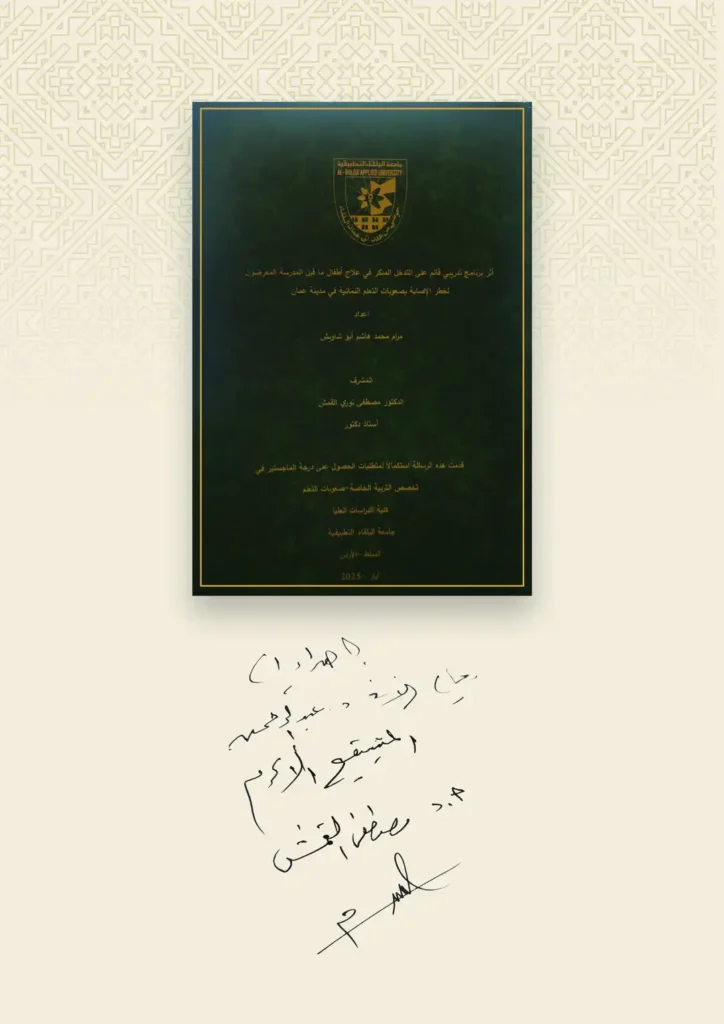 جامعة البلقاء التطبيقية
AL-BALQA APPLIED UNIVERSITY
أثر برنامج تدريبي قائم على التدخل المبكر في علاج أطفال ما قبل المدرسة المعرضون
لخطر الإصابة بصعوبات التعلم النمائية في مدينة عمان
اعداد
مرام محمد هاشم أبو شاويش
المشرف
الدكتور مصطفى نوري القمش
أستاذ دكتور
قدمت هذه الرسالة استكمالاً لمتطلبات الحصول على درجة الماجستير في
تخصص التربية الخاصة-صعوبات التعلم
كلية الدراسات العليا
جامعة البلقاء التطبيقية
السلط -الأردن
أيار -2025
اهداء إلى
الأخ د. عبدالرحمن
المشيقح الأكرم
أ.د مصطفى القمش